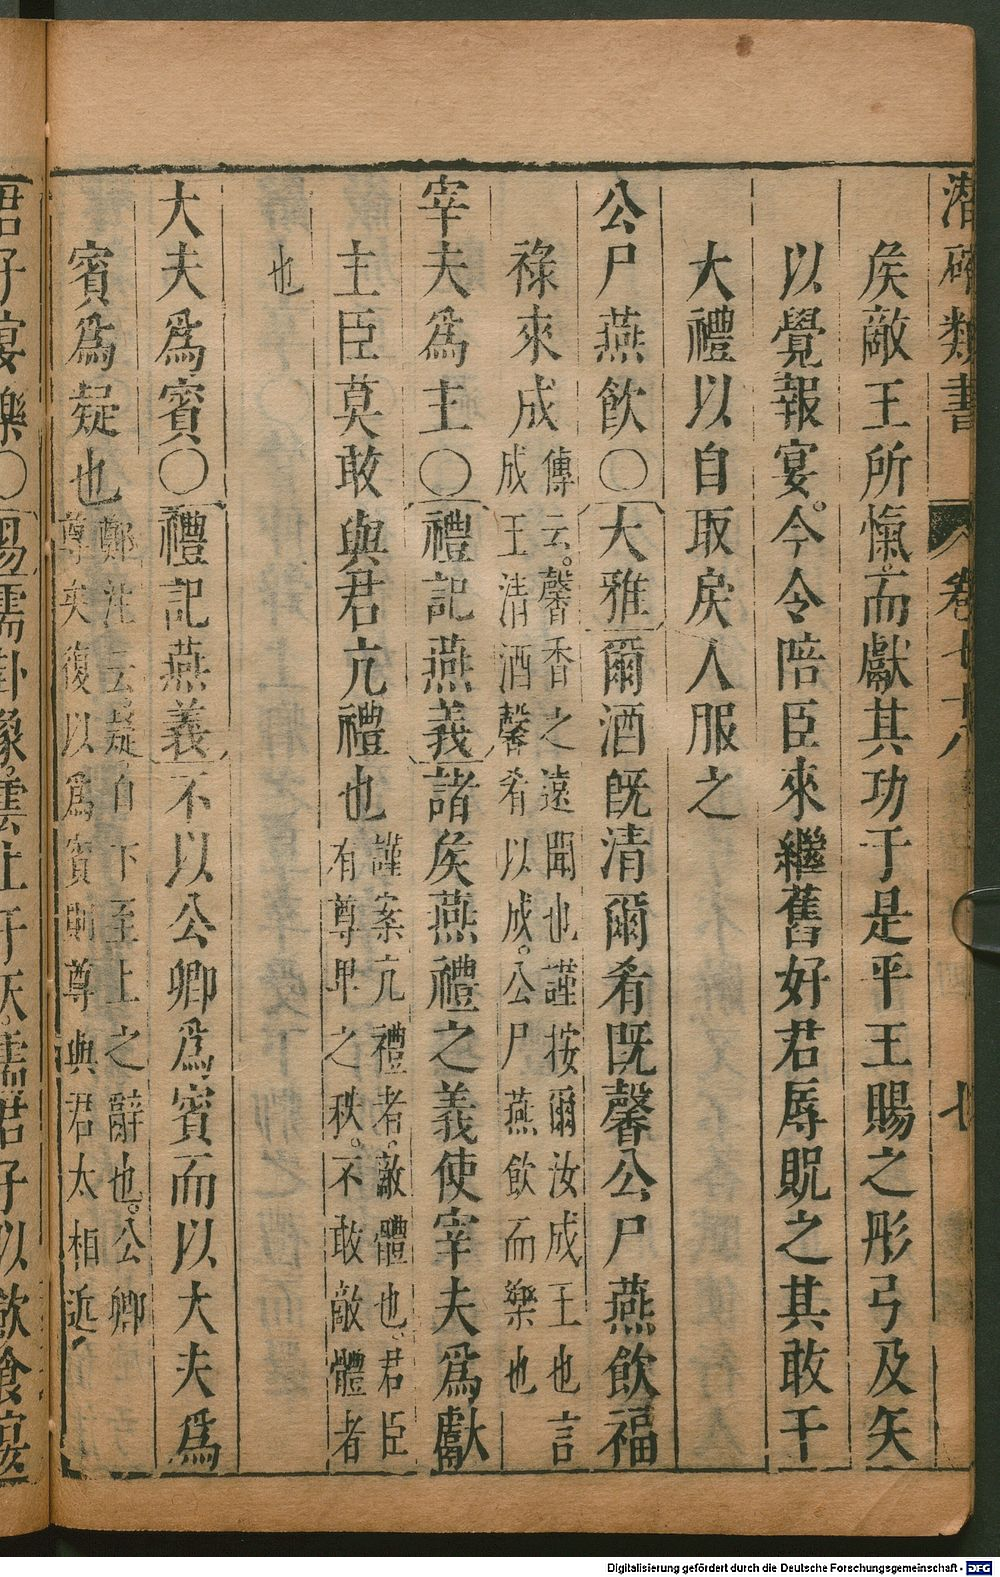 潛確類書 卷七十八 七
矦敵王所愾而獻其功于是乎王賜之彤弓及矢
以覺報宴。今令陪臣來繼舊好君辱貺之其敢干
大禮以自取戾人服之
公尸燕飲〇大雅爾酒既清爾肴既馨公尸燕飲福
祿來成傳云。馨香之遠聞也謹按爾汝成王也言
成王清酒馨肴以成。公尸燕飲而樂也
宰夫爲主〇禮記燕義諸矦燕禮之義使宰夫爲獻
主臣莫敢與君亢禮也謹案亢禮者。敵體也。君臣
有尊卑之秩。不敢敵體者
也
大夫爲賓〇禮記燕義不以公卿爲賓而以大夫爲
賓爲疑也鄭注云。疑。自下至上之辭也。公卿
尊矣復以爲賓則尊與君太相近
君子宴樂〇易需卦象。雲上于天。需君子以飲食宴
Digitalisierung gefördert durch die Deutsche Forschungsgemeinschaft - DFG